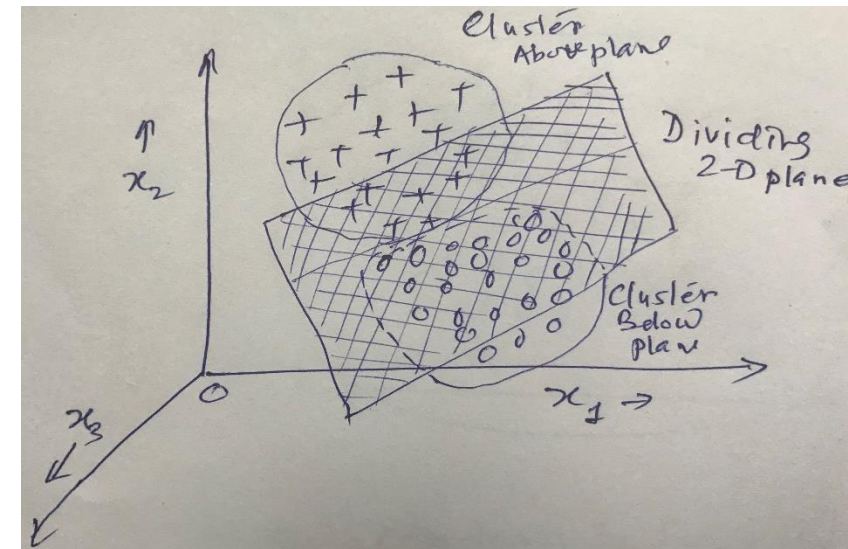 Cluster
Above plane
Dividing
2-D plane
↑
x₂
Cluster
Below
plane
O
x₁ →
x₃